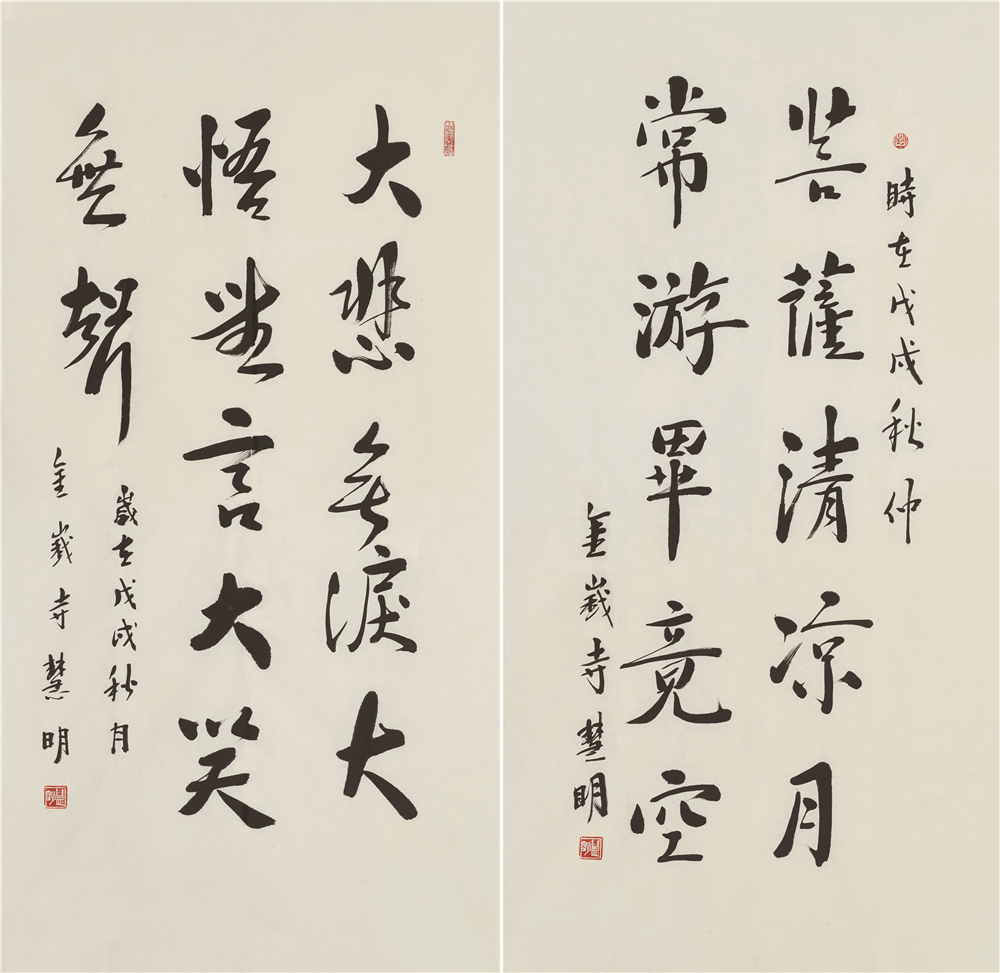 時在戊戌秋仲
菩薩清凉月
常游畢竟空
金峩寺慧明
大悲無淚大
悟無言大笑
無聲
歲在戊戌秋月
金峩寺慧明